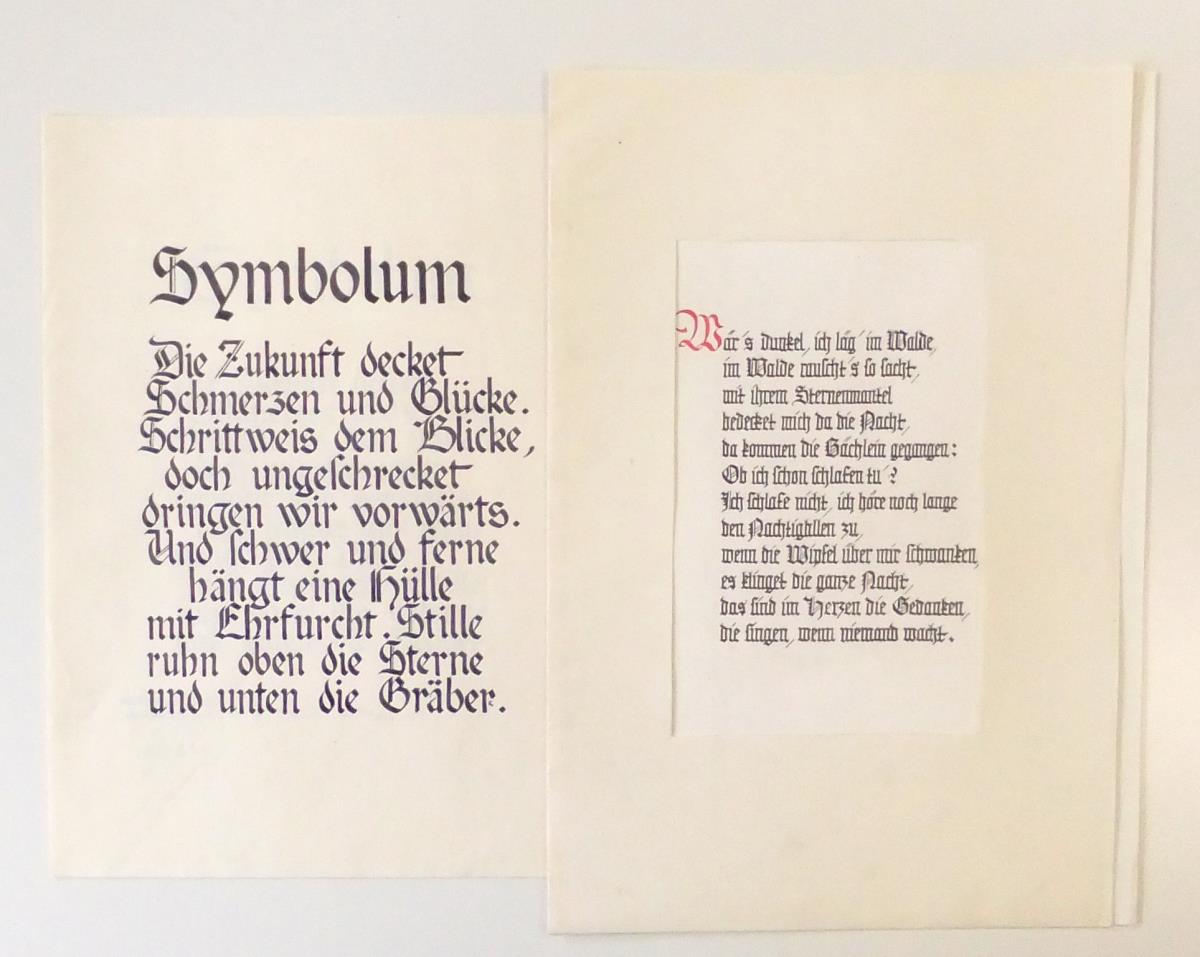 Symbolum
Die Zukunft decket
Schmerzen und Glücke.
Schrittweis dem Blicke,
doch ungeschrecket
dringen wir vorwärts.
Und schwer und ferne
hängt eine Hülle
mit Ehrfurcht. Stille
ruhn oben die Sterne
und unten die Gräber.
Wär's dunkel, ich läg' im Walde,
im Walde rauscht's so sacht,
mit ihrem Sternenmantel
bedecket mich da die Nacht,
da kommen die Bächlein gegangen:
Ob ich schon schlafen tu'?
Ich schlafe nicht, ich höre noch lange
den Nachtigallen zu,
wenn die Wipfel über mir schwanken,
es klinget die ganze Nacht,
das sind im Herzen die Gedanken,
die singen, wenn niemand wacht.